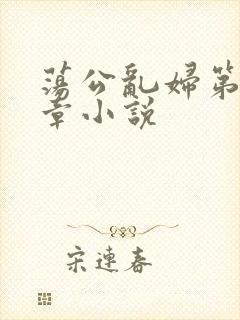 蕩公亂婦第
章小說
宋連春